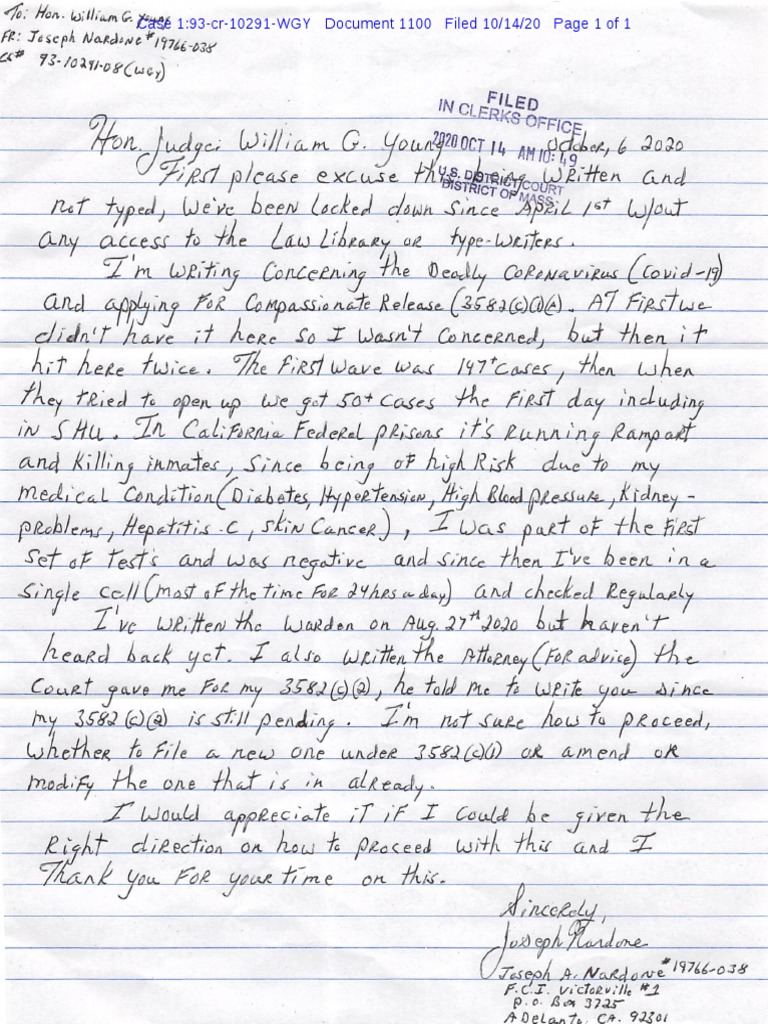 To: Hon. William G. Young
Case 1:93-cr-10291-WGY Document 1100 Filed 10/14/20 Page 1 of 1
FR: Joseph Nardone # 19766-038
CR# 93-10291-08 (WGY)
FILED
IN CLERKS OFFICE
2020 OCT 14 AM 10:49
U.S. DISTRICT COURT
DISTRICT OF MASS.
Hon. Judge: William G. Young October, 6 2020
First please excuse this being written and
not typed, We've been locked down since April 1st w/out
any access to the Law Library or type-writers.
I'm writing concerning the Deadly Coronavirus (Covid-19)
and applying for Compassionate Release (3582(c)(1)(A). AT First we
didn't have it here so I wasn't concerned, but then it
hit here twice. The first wave was 147+ cases, then when
they tried to open up we got 50+ cases the first day including
in SHU. In California Federal prisons it's running rampart
and killing inmates, since being of high Risk due to my
medical condition (Diabetes, Hypertension, High Blood pressure, Kidney-
problems, Hepatitis-C, Skin Cancer), I was part of the first
set of test's and was negative and since then I've been in a
single cell (most of the time for 24hrs a day) and checked regularly
I've written the Warden on Aug. 27th 2020 but haven't
heard back yet. I also written the Attorney (for advice) the
Court gave me for my 3582(c)(2), he told me to write you since
my 3582(c)(2) is still pending. I'm not sure how to proceed,
whether to file a new one under 3582(c)(1) or amend or
modify the one that is in already.
I would appreciate it if I could be given the
right direction on how to proceed with this and I
Thank you for your time on this.
Sincerely,
Joseph Nardone
Joseph A. Nardone # 19766-038
F.C.I. Victorville #1
P.O. Box 3725
Adelanto, CA. 92301